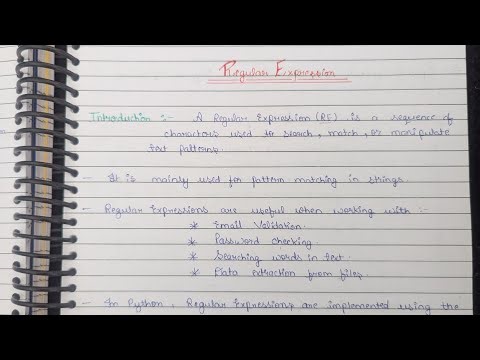 Regular Expression
Introduction :- A Regular Expression (RE) is a sequence of
characters used to search, match, or manipulate
text patterns.
- It is mainly used for pattern matching in strings.
- Regular Expressions are useful when working with :-
* Email Validation.
* Password checking.
* Searching words in text.
* Data extraction from files.
- In Python, Regular Expressions are implemented using the